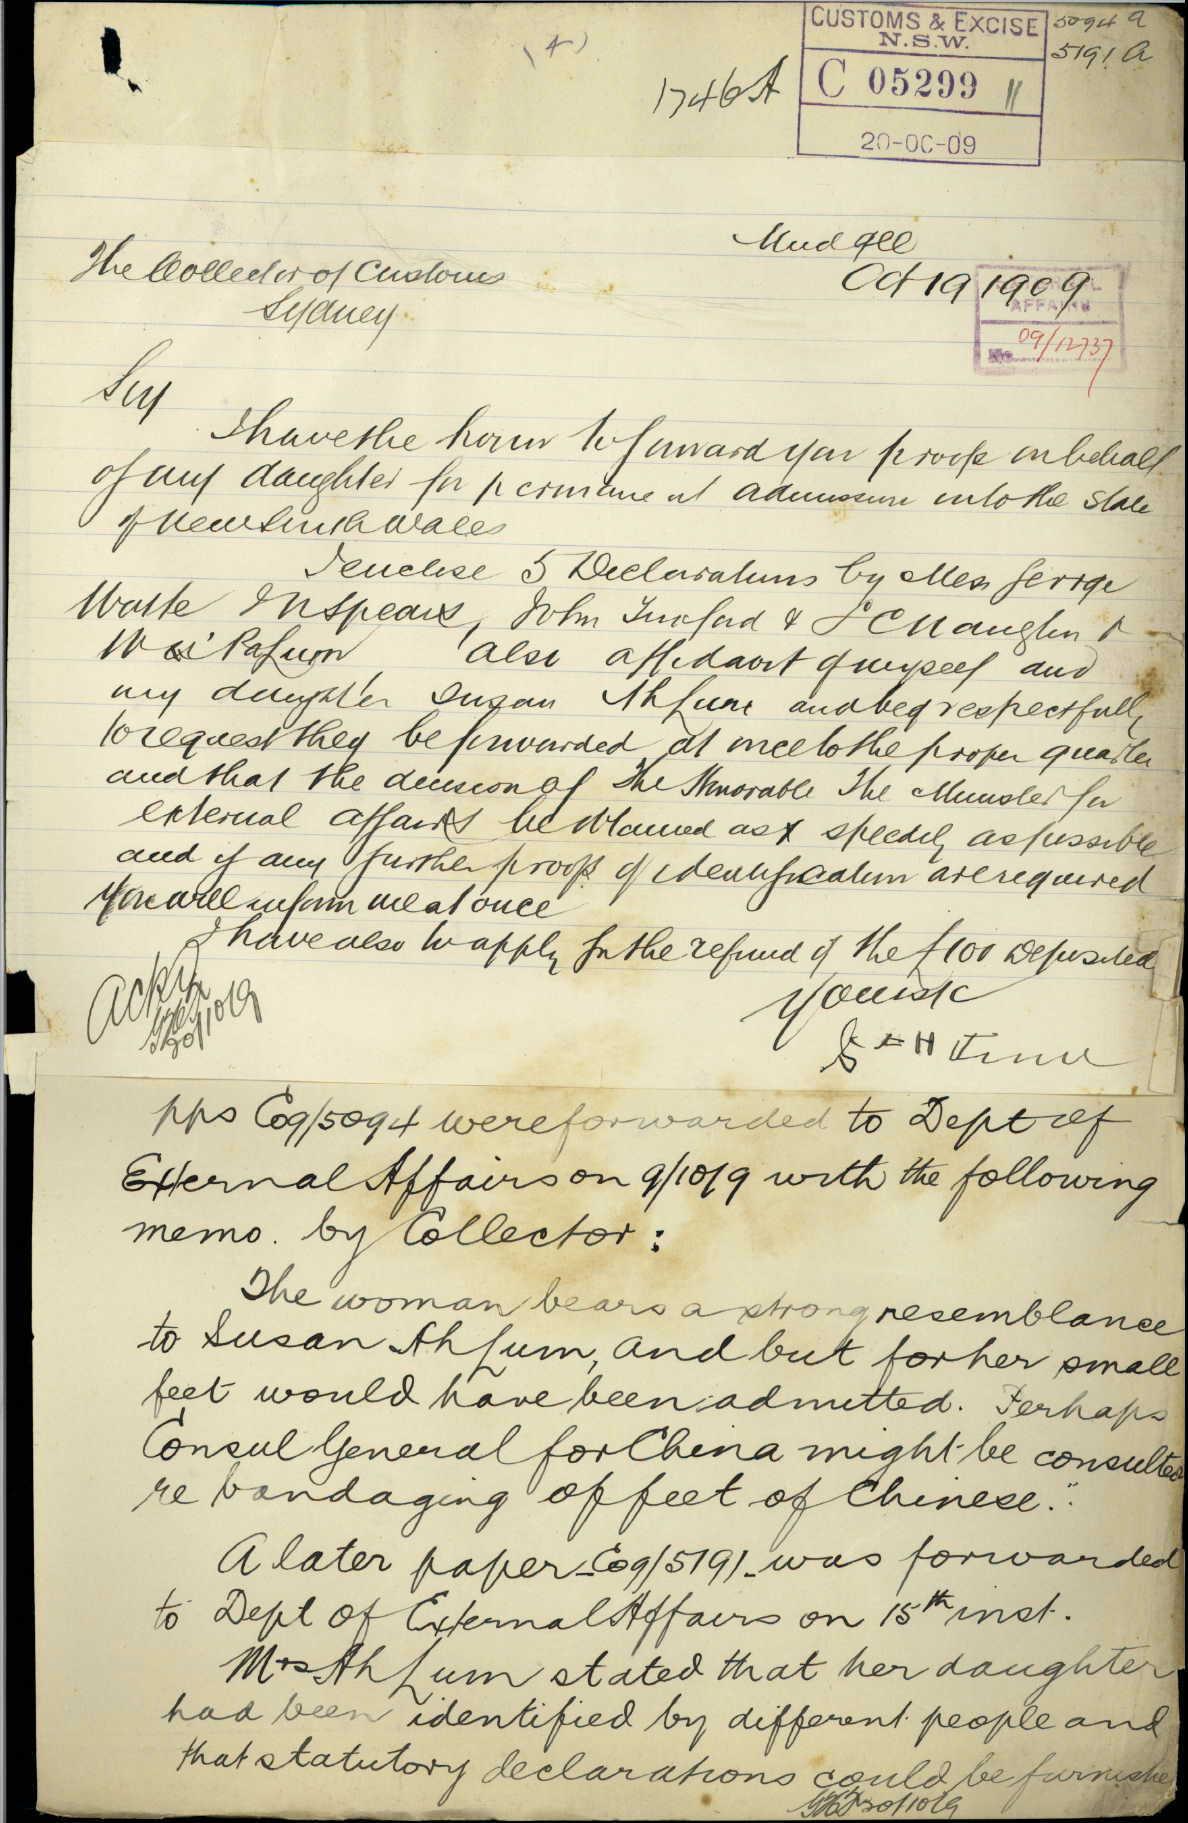 (4)
CUSTOMS & EXCISE
N.S.W.
C 05299
20-OC-09
5094 a
5191 A
1746A
Mudgee
Oct 19 1909
The Collector of Customs
Sydney
AFFAIRS
No 09/12737
Sir
I have the honor to forward you proofs on behalf
of my daughter for permanent admission into the State
of New South Wales
I enclose 5 Declarations by Mess George
Watte Spears, John & 
also affidavit of myself and
my daughter Susan Ah Lum and beg respectfully
to request they be forwarded at once to the proper quarter
and that the decision of The Honorable The Minister for
external affairs be obtained as speedily as possible
and if any further proofs of identification are required
you will inform me at once
I have also to apply for the refund of the £100 Deposited
Yours &c
Ackd
20/10/9
pps C09/5094 were forwarded to Dept of
External Affairs on 9/10/9 with the following
memo. by Collector:
The woman bears a strong resemblance
to Susan Ah Lum, and but for her small
feet would have been admitted. Perhaps
Consul General for China might be consulted
re bandaging of feet of Chinese."
A later paper - C09/5191 - was forwarded
to Dept of External Affairs on 15th inst.
Mrs Ah Lum stated that her daughter
had been identified by different people and
that statutory declarations could be furnished
20/10/9